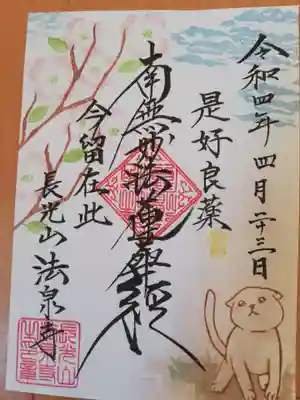 令和四年四月二十三日
是好良薬
南無妙法蓮華経
今留在此
長光山 法泉寺